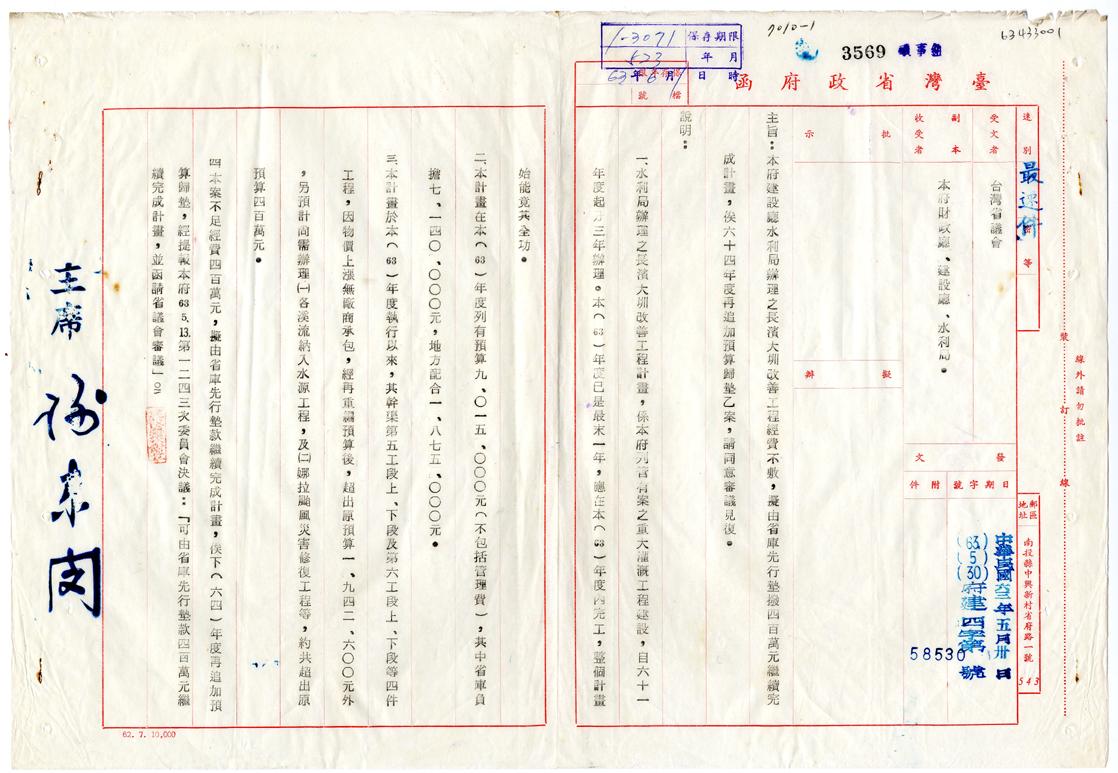 7010-1
63433001
3569
議事組
1-3071
保存期限
523
年 月
63年6月
日 時
檔號
臺灣省政府函
線外請勿批註
裝訂線
速別
最速件
等
郵區
地址
南投縣中興新村省府路一號
543
受文者
台灣省議會
副本
收受者
本府財政廳、建設廳、水利局。
批示
擬辦
發文
日期字號附件
中華民國六十三年五月卅日
(63)(5)(30)府建四字第58530號
主旨：本府建設廳水利局辦理之長濱大圳改善工程經費不敷，擬由省庫先行墊撥四百萬元繼續完
成計畫，俟六十四年度再追加預算歸墊乙案，請同意審議見復。
說明：
一、水利局辦理之長濱大圳改善工程計畫，係本府列管有案之重大灌溉工程建設，自六十一
年度起分三年辦理。本（63）年度已是最末一年，應在本（63）年度內完工，整個計畫
始能竟其全功。
二、本計畫在本（63）年度列有預算九、〇一五、〇〇〇元（不包括管理費），其中省庫負
擔七、一四〇、〇〇〇元，地方配合一、八七五、〇〇〇元。
三、本計畫於本（63）年度執行以來，其幹渠第五工段上、下段及第六工段上、下段等四件
工程，因物價上漲無廠商承包，經再重編預算後，超出原預算一、九四二、六〇〇元外
，另預計尚需辦理㈠各溪流納入水源工程，及㈡娜拉颱風災害修復工程等，約共超出原
預算四百萬元。
四、本案不足經費四百萬元，擬由省庫先行墊款繼續完成計畫，俟下（六四）年度再追加預
算歸墊，經提報本府63.5.13.第一二四三次委員會決議：「可由省庫先行墊款四百萬元繼
續完成計畫，並函請省議會審議」。
主席 謝東閔
62. 7. 10,000